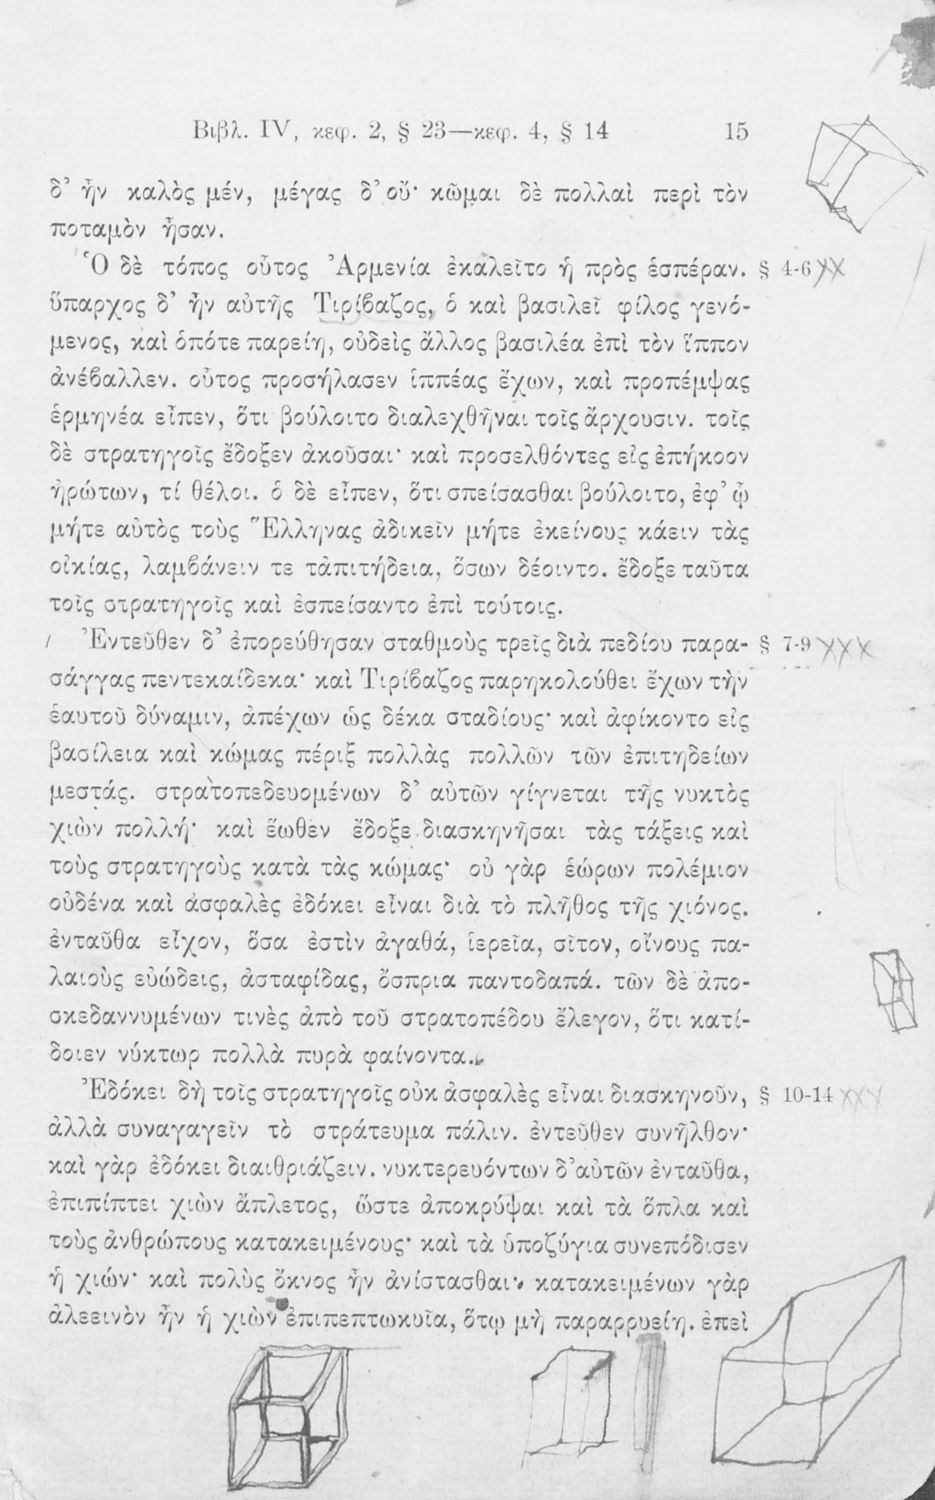 Βιβλ. IV, κεφ. 2, § 23—κεφ. 4, § 14 15
δ’ ἦν καλὸς μέν, μέγας δ’ οὔ· κῶμαι δὲ πολλαὶ περὶ τὸν
ποταμὸν ἦσαν.
Ὁ δὲ τόπος οὗτος Ἀρμενία ἐκαλεῖτο ἡ πρὸς ἑσπέραν. § 4-6
ὕπαρχος δ’ ἦν αὐτῆς Τιρίβαζος, ὁ καὶ βασιλεῖ φίλος γενό-
μενος, καὶ ὁπότε παρείη, οὐδεὶς ἄλλος βασιλέα ἐπὶ τὸν ἵππον
ἀνέβαλλεν. οὗτος προσήλασεν ἱππέας ἔχων, καὶ προπέμψας
ἑρμηνέα εἶπεν, ὅτι βούλοιτο διαλεχθῆναι τοῖς ἄρχουσιν. τοῖς
δὲ στρατηγοῖς ἔδοξεν ἀκοῦσαι· καὶ προσελθόντες εἰς ἐπήκοον
ἠρώτων, τί θέλοι. ὁ δὲ εἶπεν, ὅτι σπείσασθαι βούλοιτο, ἐφ’ ᾧ
μήτε αὐτὸς τοὺς Ἕλληνας ἀδικεῖν μήτε ἐκείνους κάειν τὰς
οἰκίας, λαμβάνειν τε τἀπιτήδεια, ὅσων δέοιντο. ἔδοξε ταῦτα
τοῖς στρατηγοῖς καὶ ἐσπείσαντο ἐπὶ τούτοις.
Ἐντεῦθεν δ’ ἐπορεύθησαν σταθμοὺς τρεῖς διὰ πεδίου παρα- § 7-9
σάγγας πεντεκαίδεκα· καὶ Τιρίβαζος παρηκολούθει ἔχων τὴν
ἑαυτοῦ δύναμιν, ἀπέχων ὡς δέκα σταδίους· καὶ ἀφίκοντο εἰς
βασίλεια καὶ κώμας πέριξ πολλὰς πολλῶν τῶν ἐπιτηδείων
μεστάς. στρατοπεδευομένων δ’ αὐτῶν γίγνεται τῆς νυκτὸς
χιὼν πολλή· καὶ ἕωθεν ἔδοξε διασκηνῆσαι τὰς τάξεις καὶ
τοὺς στρατηγοὺς κατὰ τὰς κώμας· οὐ γὰρ ἑώρων πολέμιον
οὐδένα καὶ ἀσφαλὲς ἐδόκει εἶναι διὰ τὸ πλῆθος τῆς χιόνος.
ἐνταῦθα εἶχον, ὅσα ἐστὶν ἀγαθά, ἱερεῖα, σῖτον, οἴνους πα-
λαιοὺς εὐώδεις, ἀσταφίδας, ὄσπρια παντοδαπά. τῶν δὲ ἀπο-
σκεδαννυμένων τινὲς ἀπὸ τοῦ στρατοπέδου ἔλεγον, ὅτι κατί-
δοιεν νύκτωρ πολλὰ πυρὰ φαίνοντα.
Ἐδόκει δὴ τοῖς στρατηγοῖς οὐκ ἀσφαλὲς εἶναι διασκηνοῦν, § 10-14
ἀλλὰ συναγαγεῖν τὸ στράτευμα πάλιν. ἐντεῦθεν συνῆλθον·
καὶ γὰρ ἐδόκει διαιθριάζειν. νυκτερευόντων δ’ αὐτῶν ἐνταῦθα,
ἐπιπίπτει χιὼν ἄπλετος, ὥστε ἀποκρύψαι καὶ τὰ ὅπλα καὶ
τοὺς ἀνθρώπους κατακειμένους· καὶ τὰ ὑποζύγια συνεπόδισεν
ἡ χιών· καὶ πολὺς ὄκνος ἦν ἀνίστασθαι· κατακειμένων γὰρ
ἀλεεινὸν ἦν ἡ χιὼν ἐπιπεπτωκυῖα, ὅτῳ μὴ παραρρυείη. ἐπεὶ